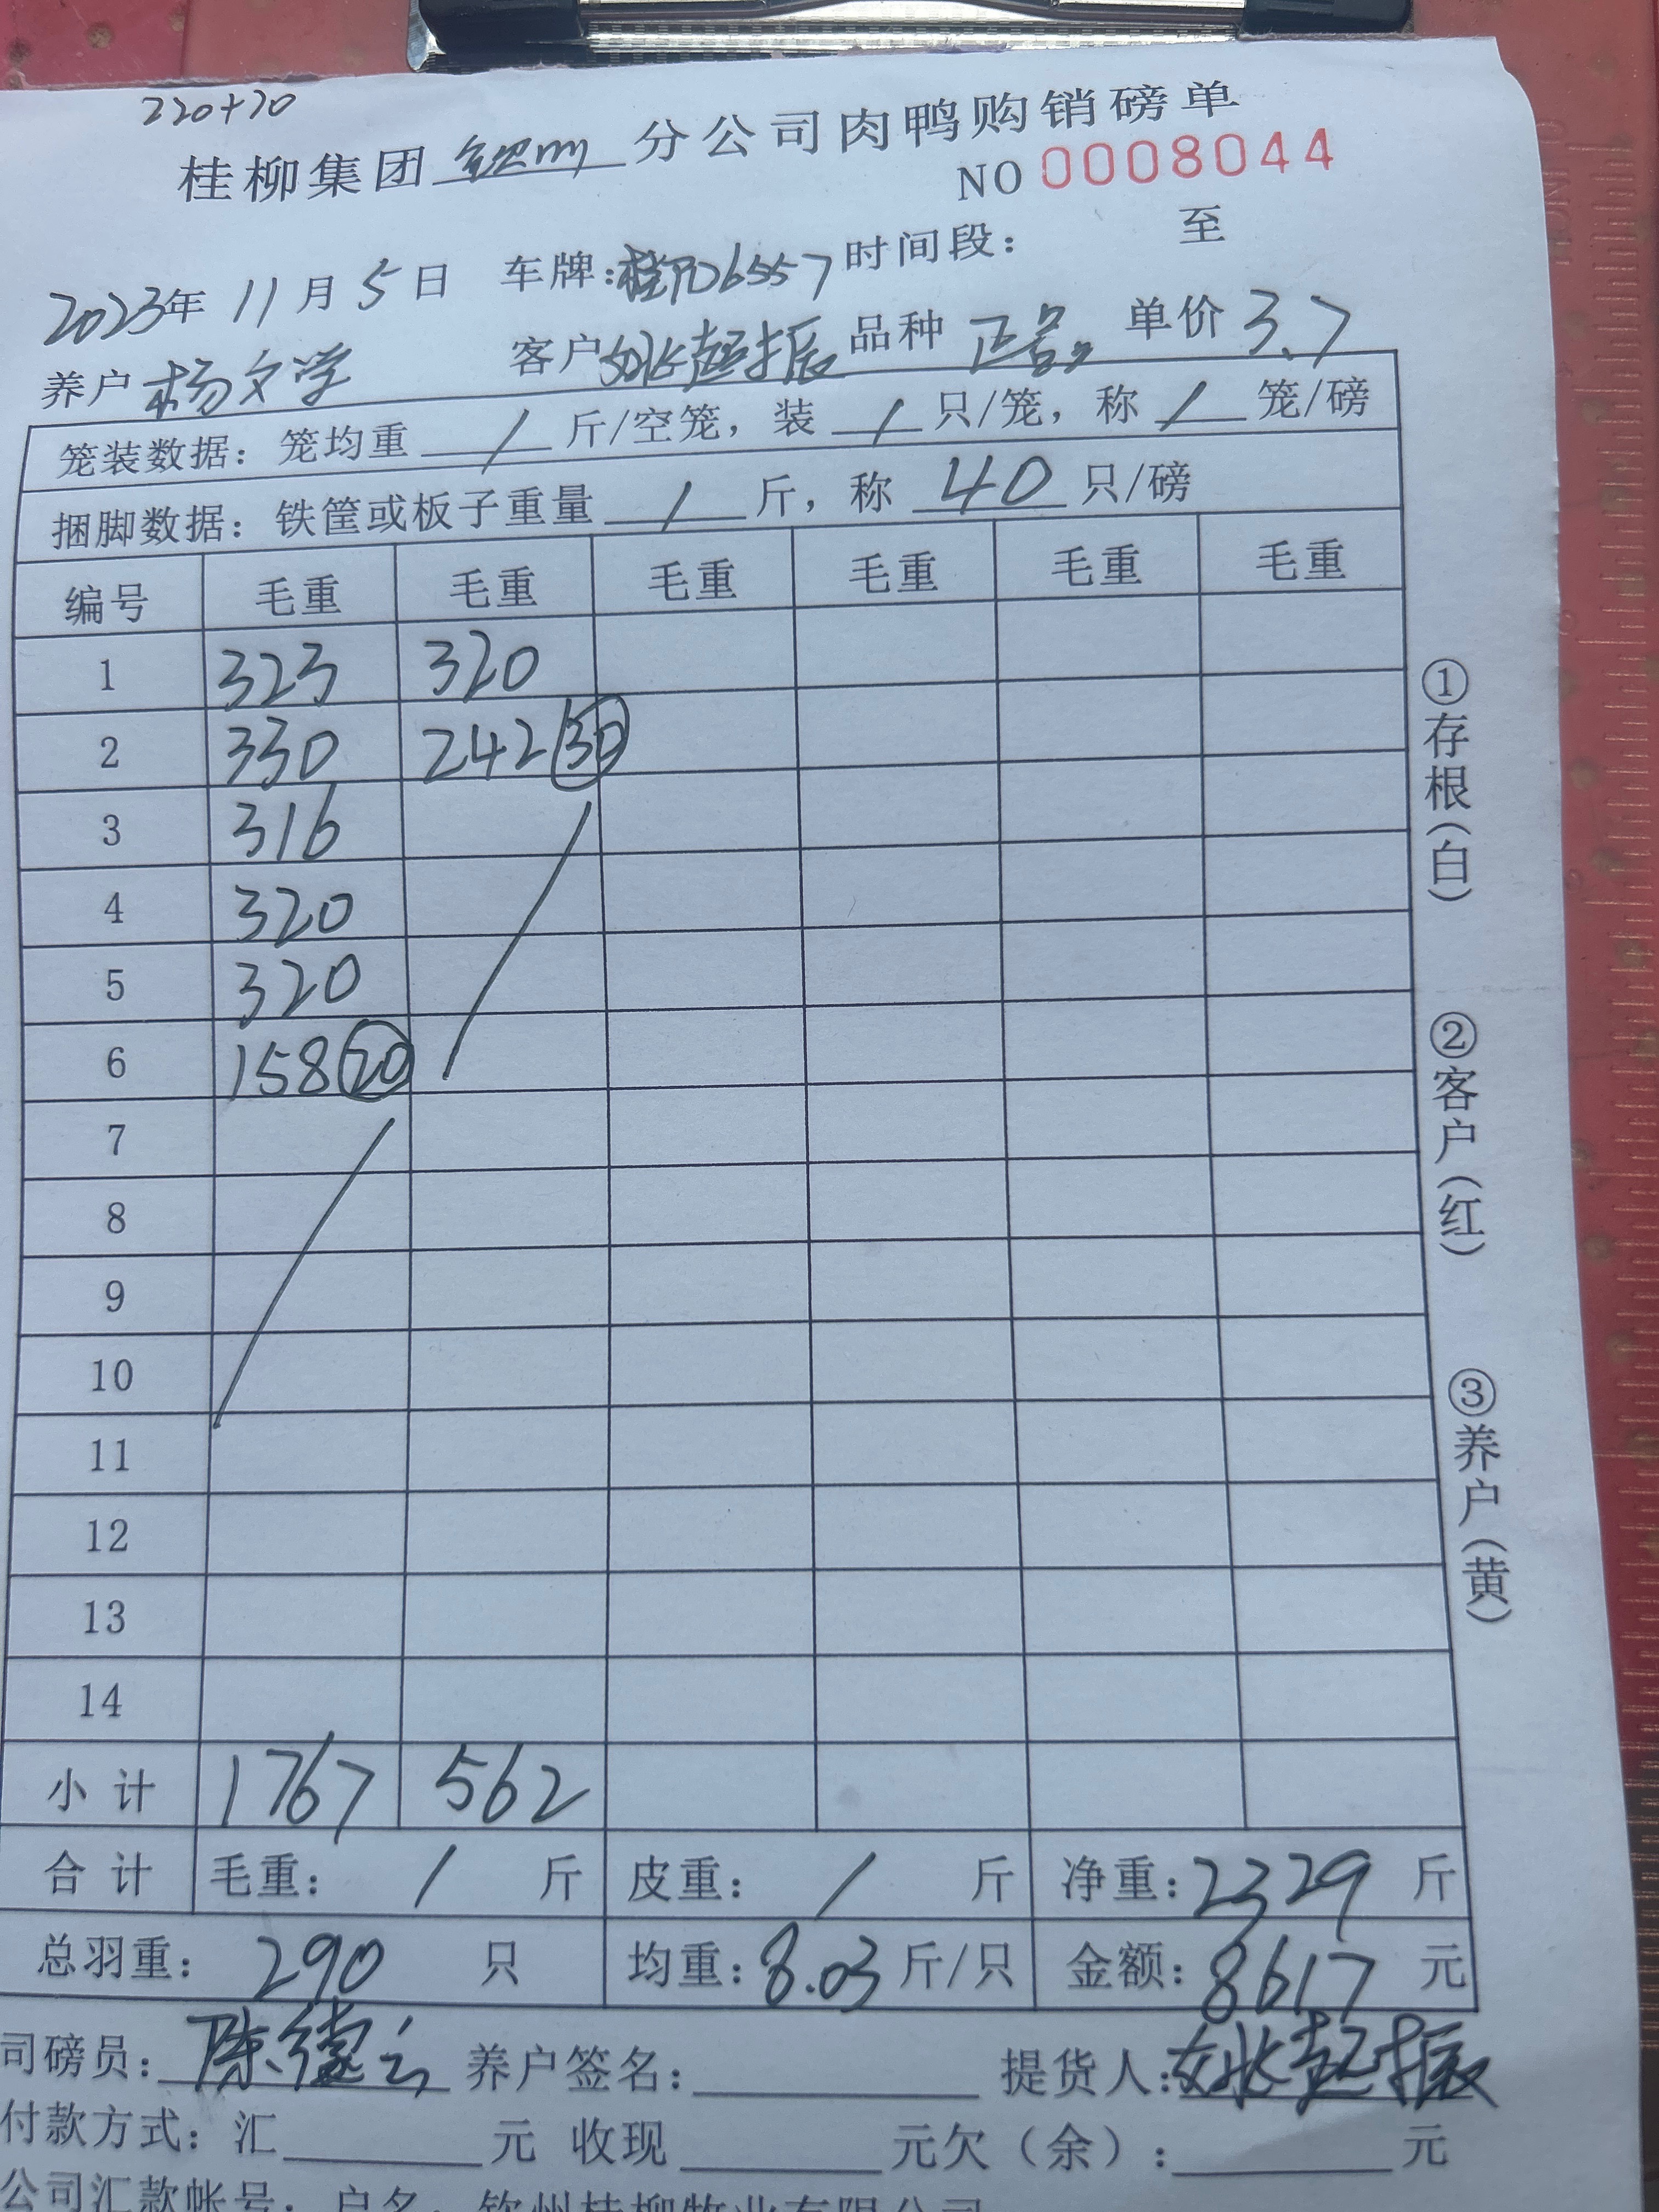 220+70
桂柳集团钦州分公司肉鸭购销磅单
NO 0008044
2023年 11月5日 车牌:桂PD6557 时间段: 至
养户 杨文学 客户 姚起振 品种 正品 单价 3.7
笼装数据: 笼均重 / 斤/空笼, 装 / 只/笼, 称 / 笼/磅
捆脚数据: 铁筐或板子重量 / 斤, 称 40 只/磅
编号 毛重 毛重 毛重 毛重 毛重 毛重
1 323 320
2 330 242 30
3 316
4 320
5 320
6 158 20
7
8
9
10
11
12
13
14
小计 1767 562
合计 毛重: / 斤 皮重: / 斤 净重: 2329 斤
总羽重: 290 只 均重: 8.03 斤/只 金额: 8617 元
司磅员: 陈 养户签名: 提货人: 姚起振
付款方式: 汇 元 收现 元欠(余): 元
公司汇款帐号: 户名: 钦州桂柳牧业有限公司
①存根(白)
②客户(红)
③养户(黄)